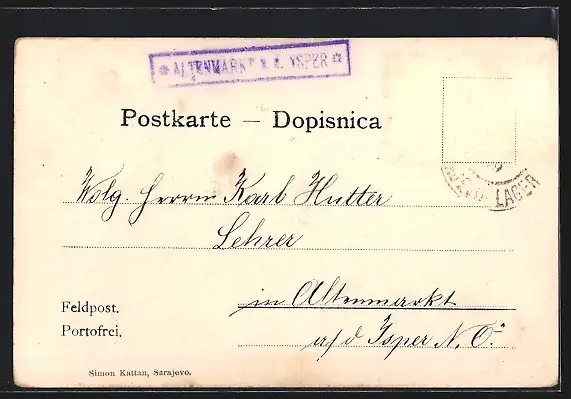 * ALTENMARKT a. d. YSPER *
Postkarte — Dopisnica
LAGER
Wolg. Herrn Karl Hutter
Lehrer
in Altenmarkt
a/d Isper N. Ö.
Feldpost.
Portofrei.
Simon Kattan, Sarajevo.